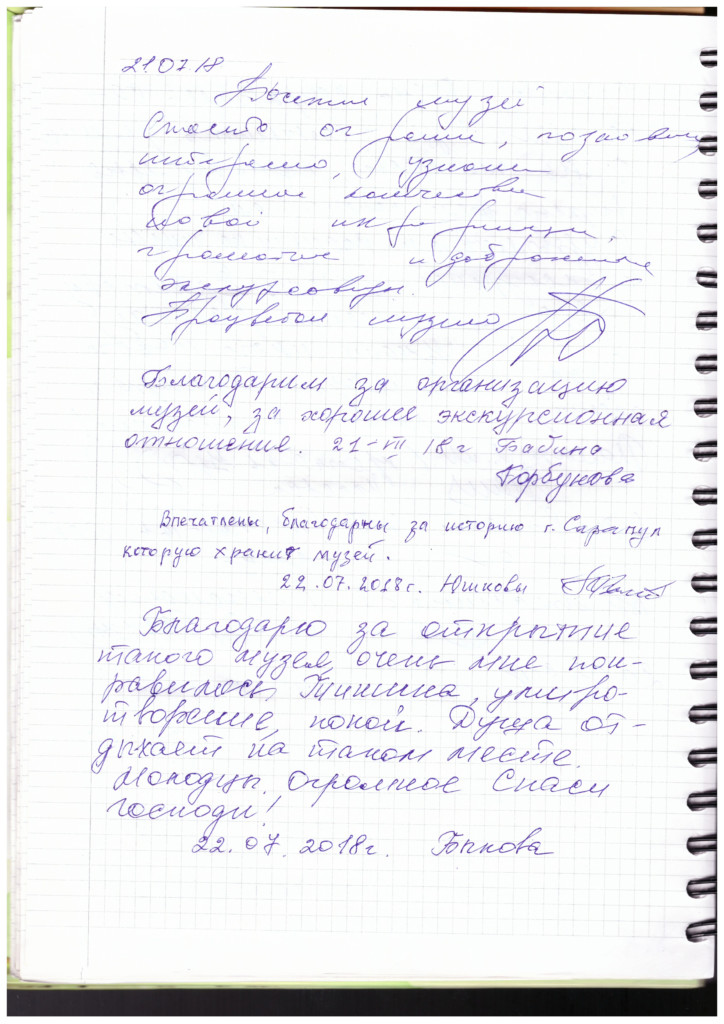 21.07.18
Посетил музей
Спасибо огромн, познавательно,
интересно, узнали
огромное количество
новой информации,
грамотные и доброжелательные
экскурсоводы.
Процветания музею
Благодарим за организацию
музей, за хорошее экскурсионная
отношения. 21-VII 18г Бабина
Горбунова
Впечатлены, благодарны за историю г. Сарапул
которую хранит музей.
22.07.2018г. Юшковы
Благодарю за открытие
такого музея, очень мне пон-
равилось. Тишина, умиро-
творение, покой. Душа от-
дыхает на таком месте.
Молодцы. Огромное Спаси
господи!
22.07.2018г. Быкова